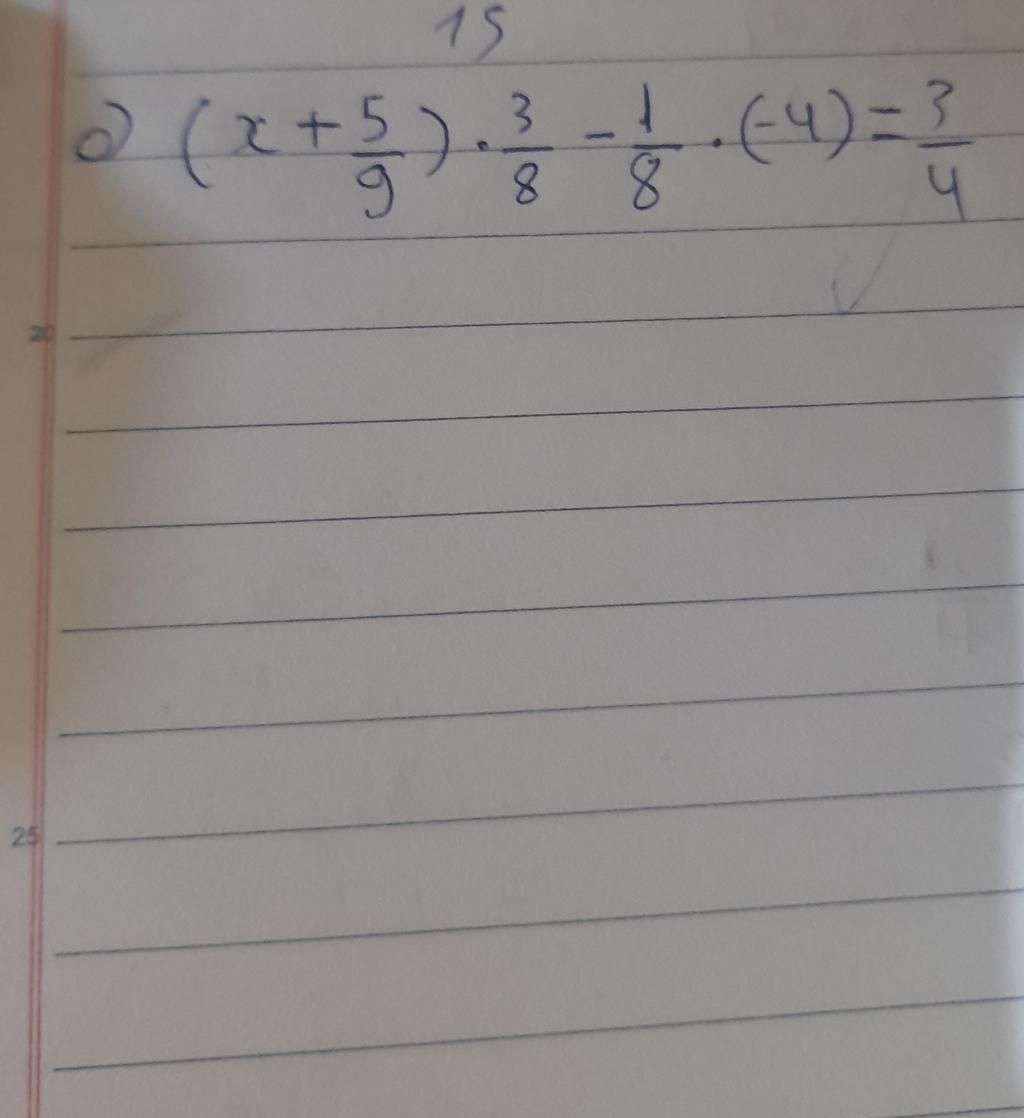 15
d) (x + 5/9) · 3/8 - 1/8 · (-4) = 3/4
20
25